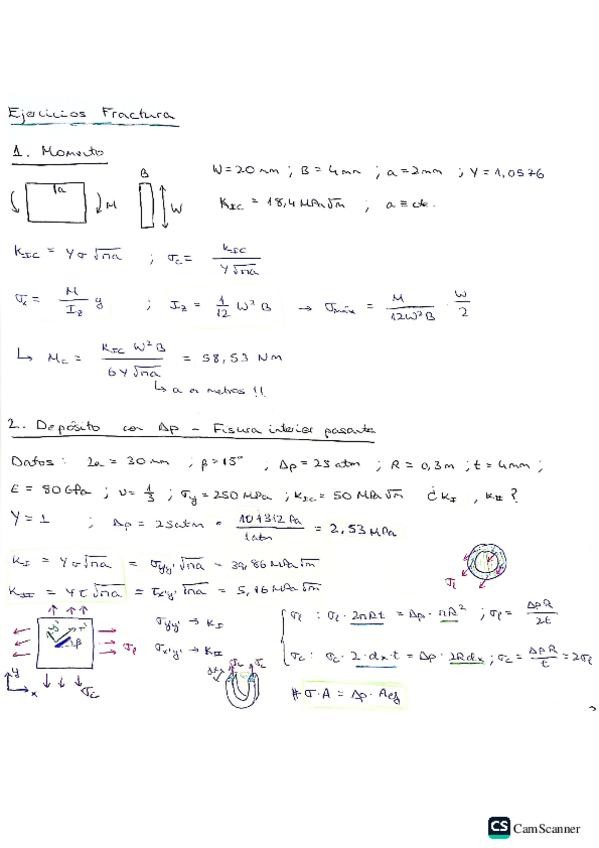 Ejercicios Fractura
1. Momento
W = 20 mm ; B = 4 mm ; a = 2 mm ; Y = 1,0576
K_IC = 18,4 MPa√m ; a ≡ cte.
a
M
B
W
K_IC = Yσ√πa ; σ_c = K_IC / Y√πa
σ_x = M/I_z y ; I_z = 1/12 W³B → σ_máx = M / 12W³B · W/2
↳ M_c = K_IC W²B / 6Y√πa = 58,53 Nm
↳ a en metros !!
2. Depósito con Δp - Fisura interior pasante
Datos : 2a = 30 mm ; β = 15° ; Δp = 25 atm ; R = 0,3 m ; t = 4 mm ;
E = 80 GPa ; ν = 1/3 ; σ_y = 250 MPa ; K_IC = 50 MPa√m ¿ K_I , K_II ?
Y = 1 ; Δp = 25 atm · 101312 Pa / 1 atm = 2,53 MPa
K_I = Yσ√πa = σ_y'y' √πa = 39,86 MPa√m
K_II = Yτ√πa = τ_x'y' √πa = 5,16 MPa√m
σ_l
σ_y'y' → K_I
σ_x'y' → K_II
σ_l : σ_l · 2πRt = Δp · πR² ; σ_l = ΔpR / 2t
σ_c : σ_c · 2 · dx · t = Δp · 2Rdx ; σ_c = ΔpR / t = 2σ_l
y' x'
β
σ_l
y
x
σ_c
σ_c σ_c
# σ · A = Δp · A_ef
CS CamScanner